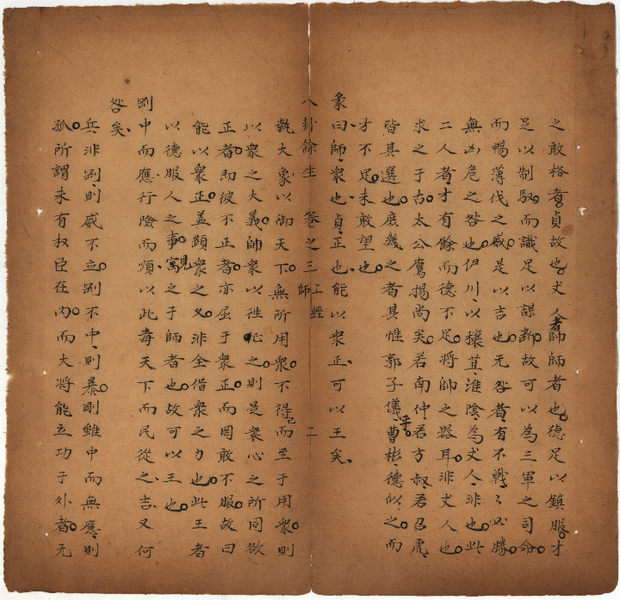 之敢格者。貞故也。丈人者師師者也。德足以鎮服。才
足以制馭。而識足以謀斷。故可以為三軍之司命。
而暢薄伐之威。是以吉也。无咎者有不戰。戰必勝。
無凶危之咎也。伊川以穰苴淮陰為丈人。非也。此
二人者。才有餘而德不足。將帥之器耳。非丈人也。
求之于古。太公鷹揚尚矣。若南仲若方叔若召虎。
皆其選也。庶幾之者其惟郭子儀乎。曹彬、德似之。而
才不足。未敢望也。
彖曰師、眾也、貞、正也、能以眾正、可以王矣、
八卦餘生 卷之三 上經 師 二
執大象以御天下。無所用眾。不得已而至于用眾。則
以眾之大義。師眾以往。征之。則是眾心之所同欲
正者。即彼不正者。亦屈于眾正。而罔敢不服。故曰
能以眾正。蓋顯眾之义。非全借眾之力也。此王者
以德服人之事。寓見之于師者也。故可以王也。
剛中而應、行險而順、以此毒天下而民從之、吉又何
咎矣、
兵非剛、則威不立。剛不中、則暴。剛雖中而無應、則
孤。所謂未有叔臣在內。而大將能立功于外者。无